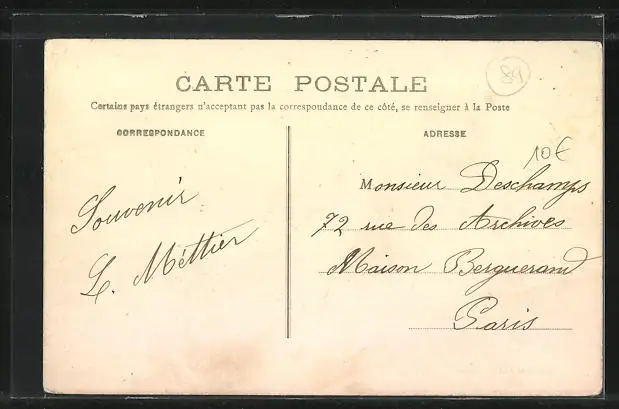 CARTE POSTALE
Certains pays étrangers n'acceptant pas la correspondance de ce côté, se renseigner à la Poste
CORRESPONDANCE
ADRESSE
89
10€
Souvenir
L. Méttier
Monsieur Deschamps
72 rue des Archives
Maison Berguerand
Paris